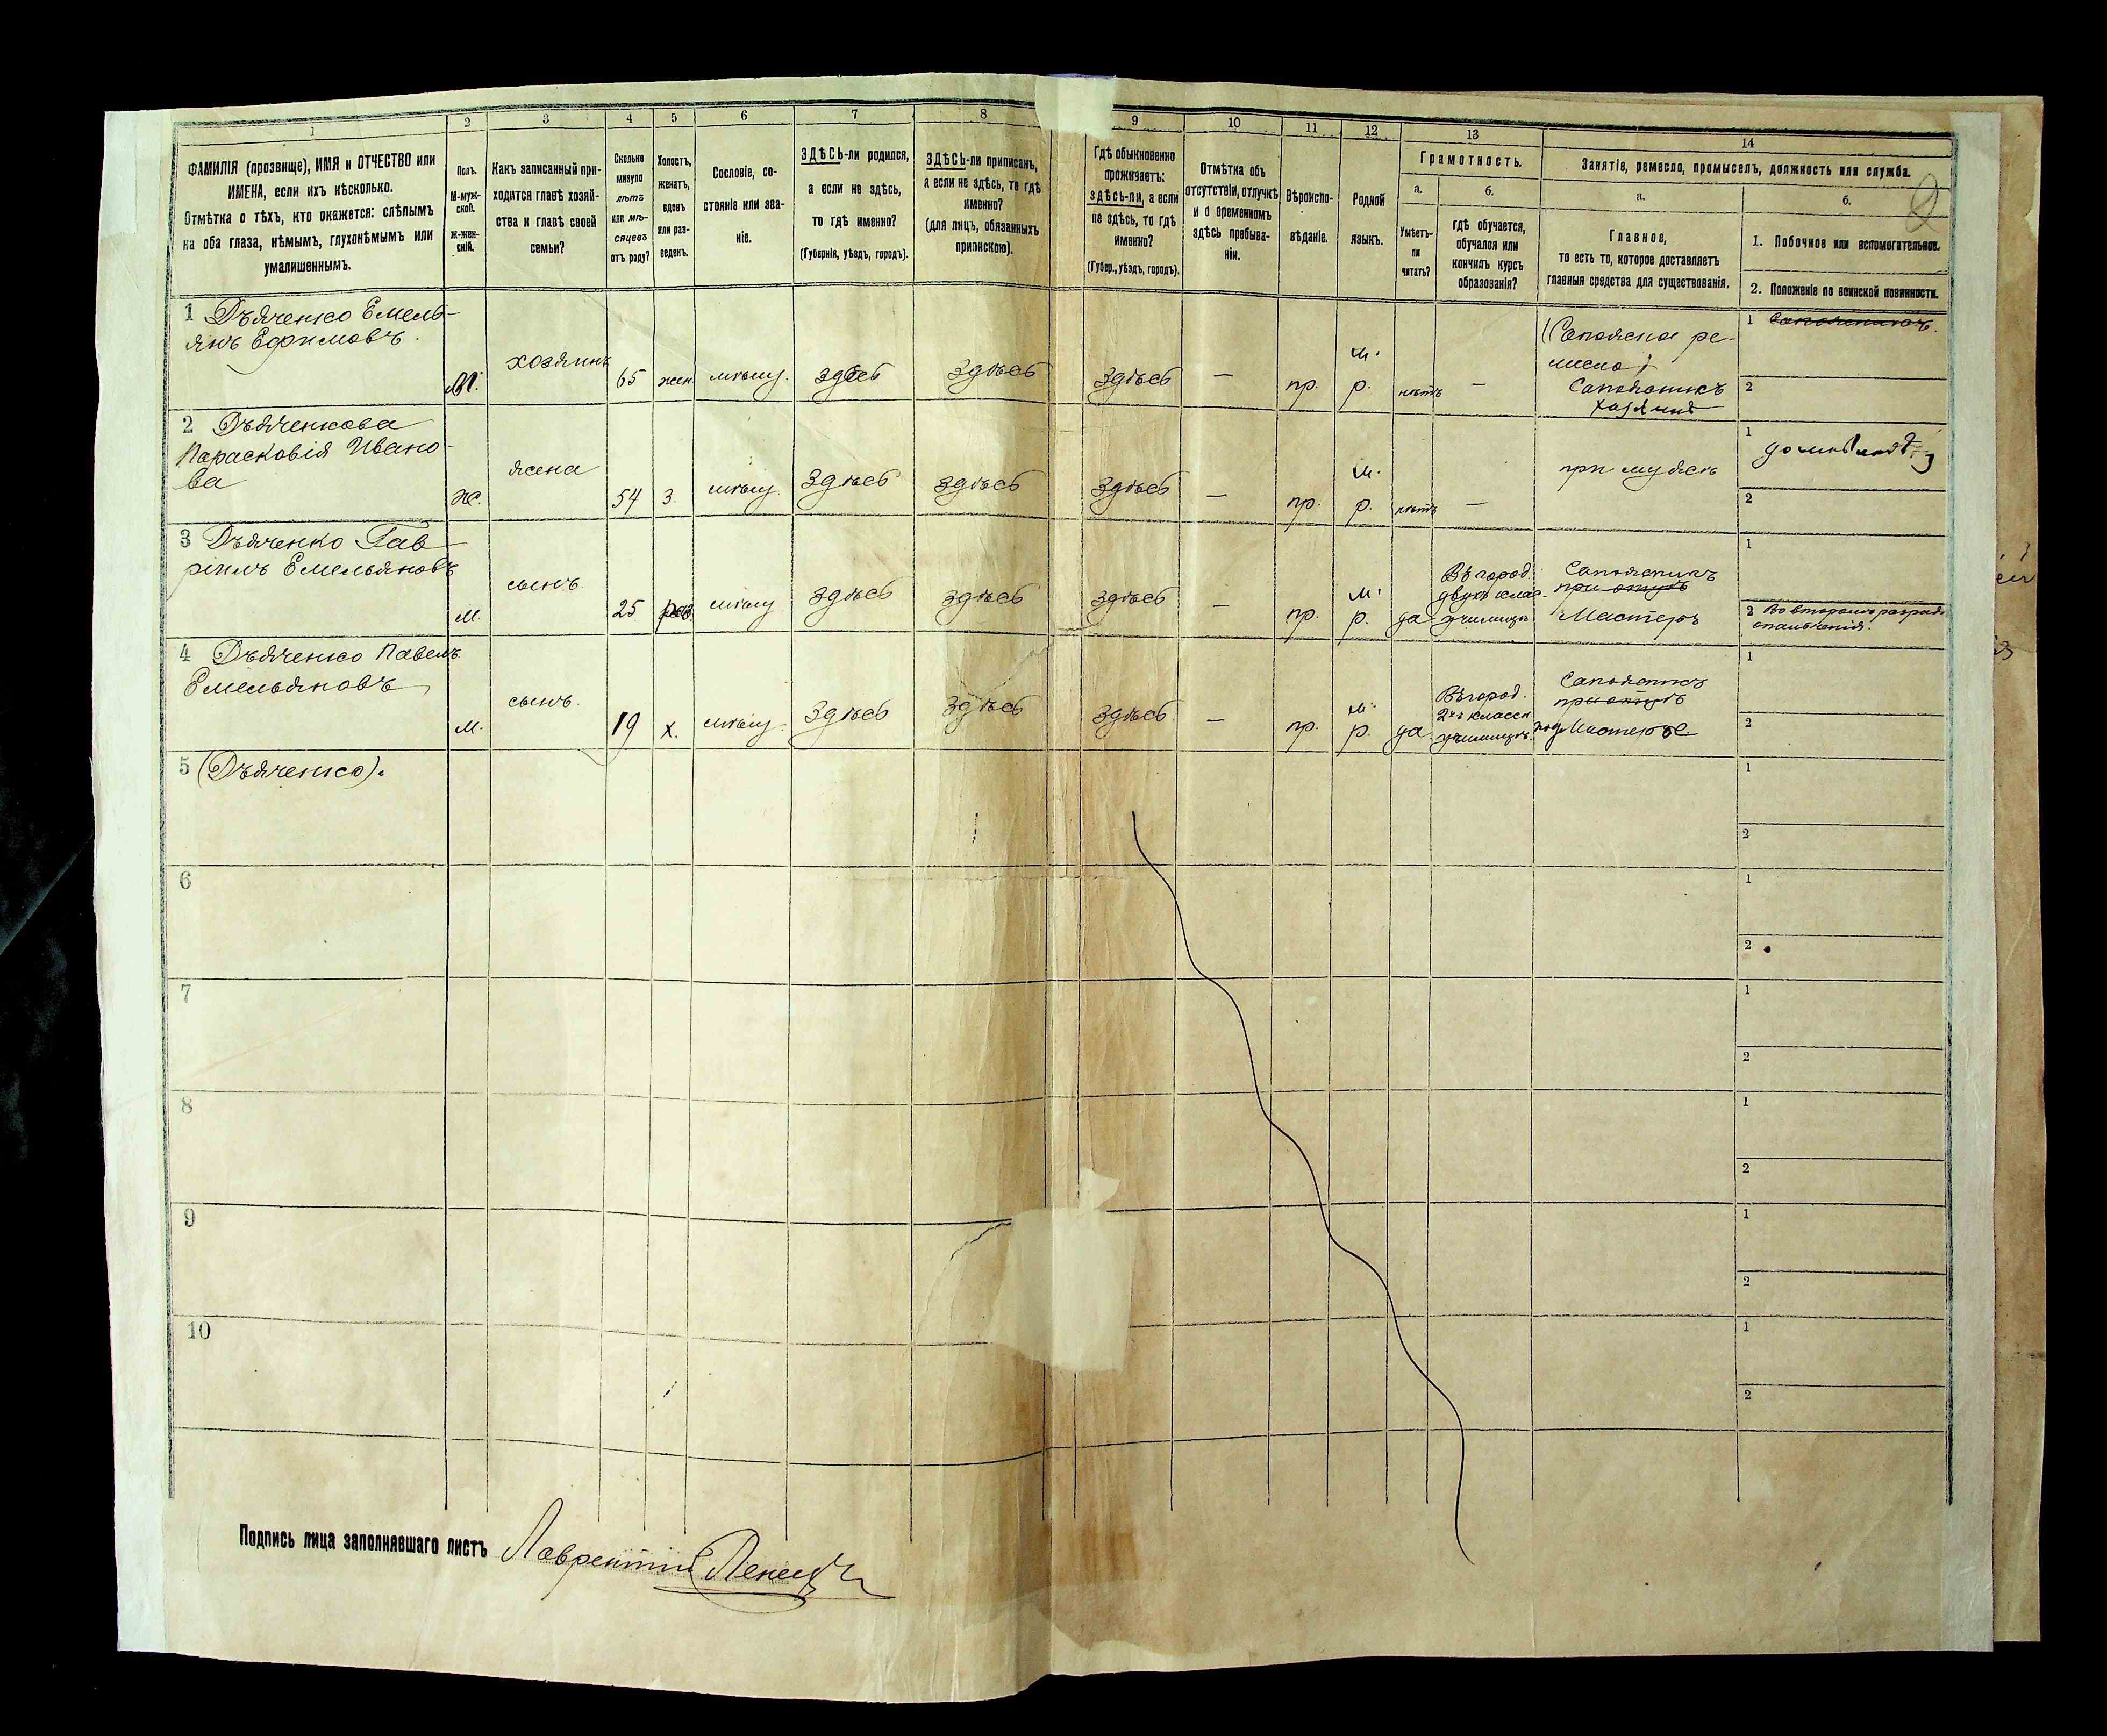 1 2 3 4 5 6 7 8 9 10 11 12 13 14
ФАМИЛІЯ (прозвище), ИМЯ и ОТЧЕСТВО или
ИМЕНА, если ихъ нѣсколько.
Отмѣтка о тѣхъ, кто окажется: слѣпымъ
на оба глаза, нѣмымъ, глухонѣмымъ или
умалишеннымъ.
Полъ.
М-муж-
ской.
Ж-жен-
скій.
Какъ записанный при-
ходится главѣ хозяй-
ства и главѣ своей
семьи?
Сколько
минуло
лѣтъ
или мѣ-
сяцевъ
отъ роду?
Холостъ,
женатъ,
вдовъ
или раз-
веденъ.
Сословіе, со-
стояніе или зва-
ніе.
ЗДѢСЬ-ли родился,
а если не здѣсь,
то гдѣ именно?
(Губернія, уѣздъ, городъ).
ЗДѢСЬ-ли приписанъ,
а если не здѣсь, то гдѣ
именно?
(для лицъ, обязанныхъ
припискою).
Гдѣ обыкновенно
проживаетъ:
ЗДѢСЬ-ли, а если
не здѣсь, то гдѣ
именно?
(Губер., уѣздъ, городъ).
Отмѣтка объ
отсутствіи, отлучкѣ
и о временномъ
здѣсь пребыва-
ніи.
Вѣроиспо-
вѣданіе.
Родной
языкъ.
Грамотность.
а.
Умѣетъ-
ли
читать?
б.
Гдѣ обучается,
обучался или
кончилъ курсъ
образованія?
Занятіе, ремесло, промыселъ, должность или служба.
а.
Главное,
то есть то, которое доставляетъ
главныя средства для существованія.
б.
1. Побочное или вспомогательное.
2. Положеніе по воинской повинности.
1 Дъяченко Емель-
янъ Ефимовъ.
М. хозяинъ 65 жен. мѣщ. здѣсь здѣсь здѣсь — пр. м. р. нѣтъ —
(Сапожное ре-
месло)
Сапожникъ
хозяинъ
1 Сапожникъ.
2
2 Дъяченкова
Парасковія Ивано-
ва
Ж. жена 54 З. мѣщ. здѣсь здѣсь здѣсь — пр. м. р. нѣтъ — при мужѣ
1
2
3 Дъяченко Гав-
ріилъ Емельяновъ
М. сынъ. 25 мѣщ здѣсь здѣсь здѣсь — пр. м. р. да
Въ город.
двухъ клас.
училищѣ
Сапожникъ
при отцѣ
Мастеръ
1
2 Во второмъ разрядѣ
ополченія.
4 Дъяченко Павелъ
Емельяновъ
М. сынъ. 19 х. мѣщ. здѣсь здѣсь здѣсь — пр. м. р. да
Въ город.
2хъ классн.
училищѣ.
Сапожникъ
при отцѣ
подмастерье
1
2
5 (Дъяченко).
1
2
6
1
2
7
1
2
8
1
2
9
1
2
10
1
2
Подпись лица заполнявшаго листъ Лаврентій